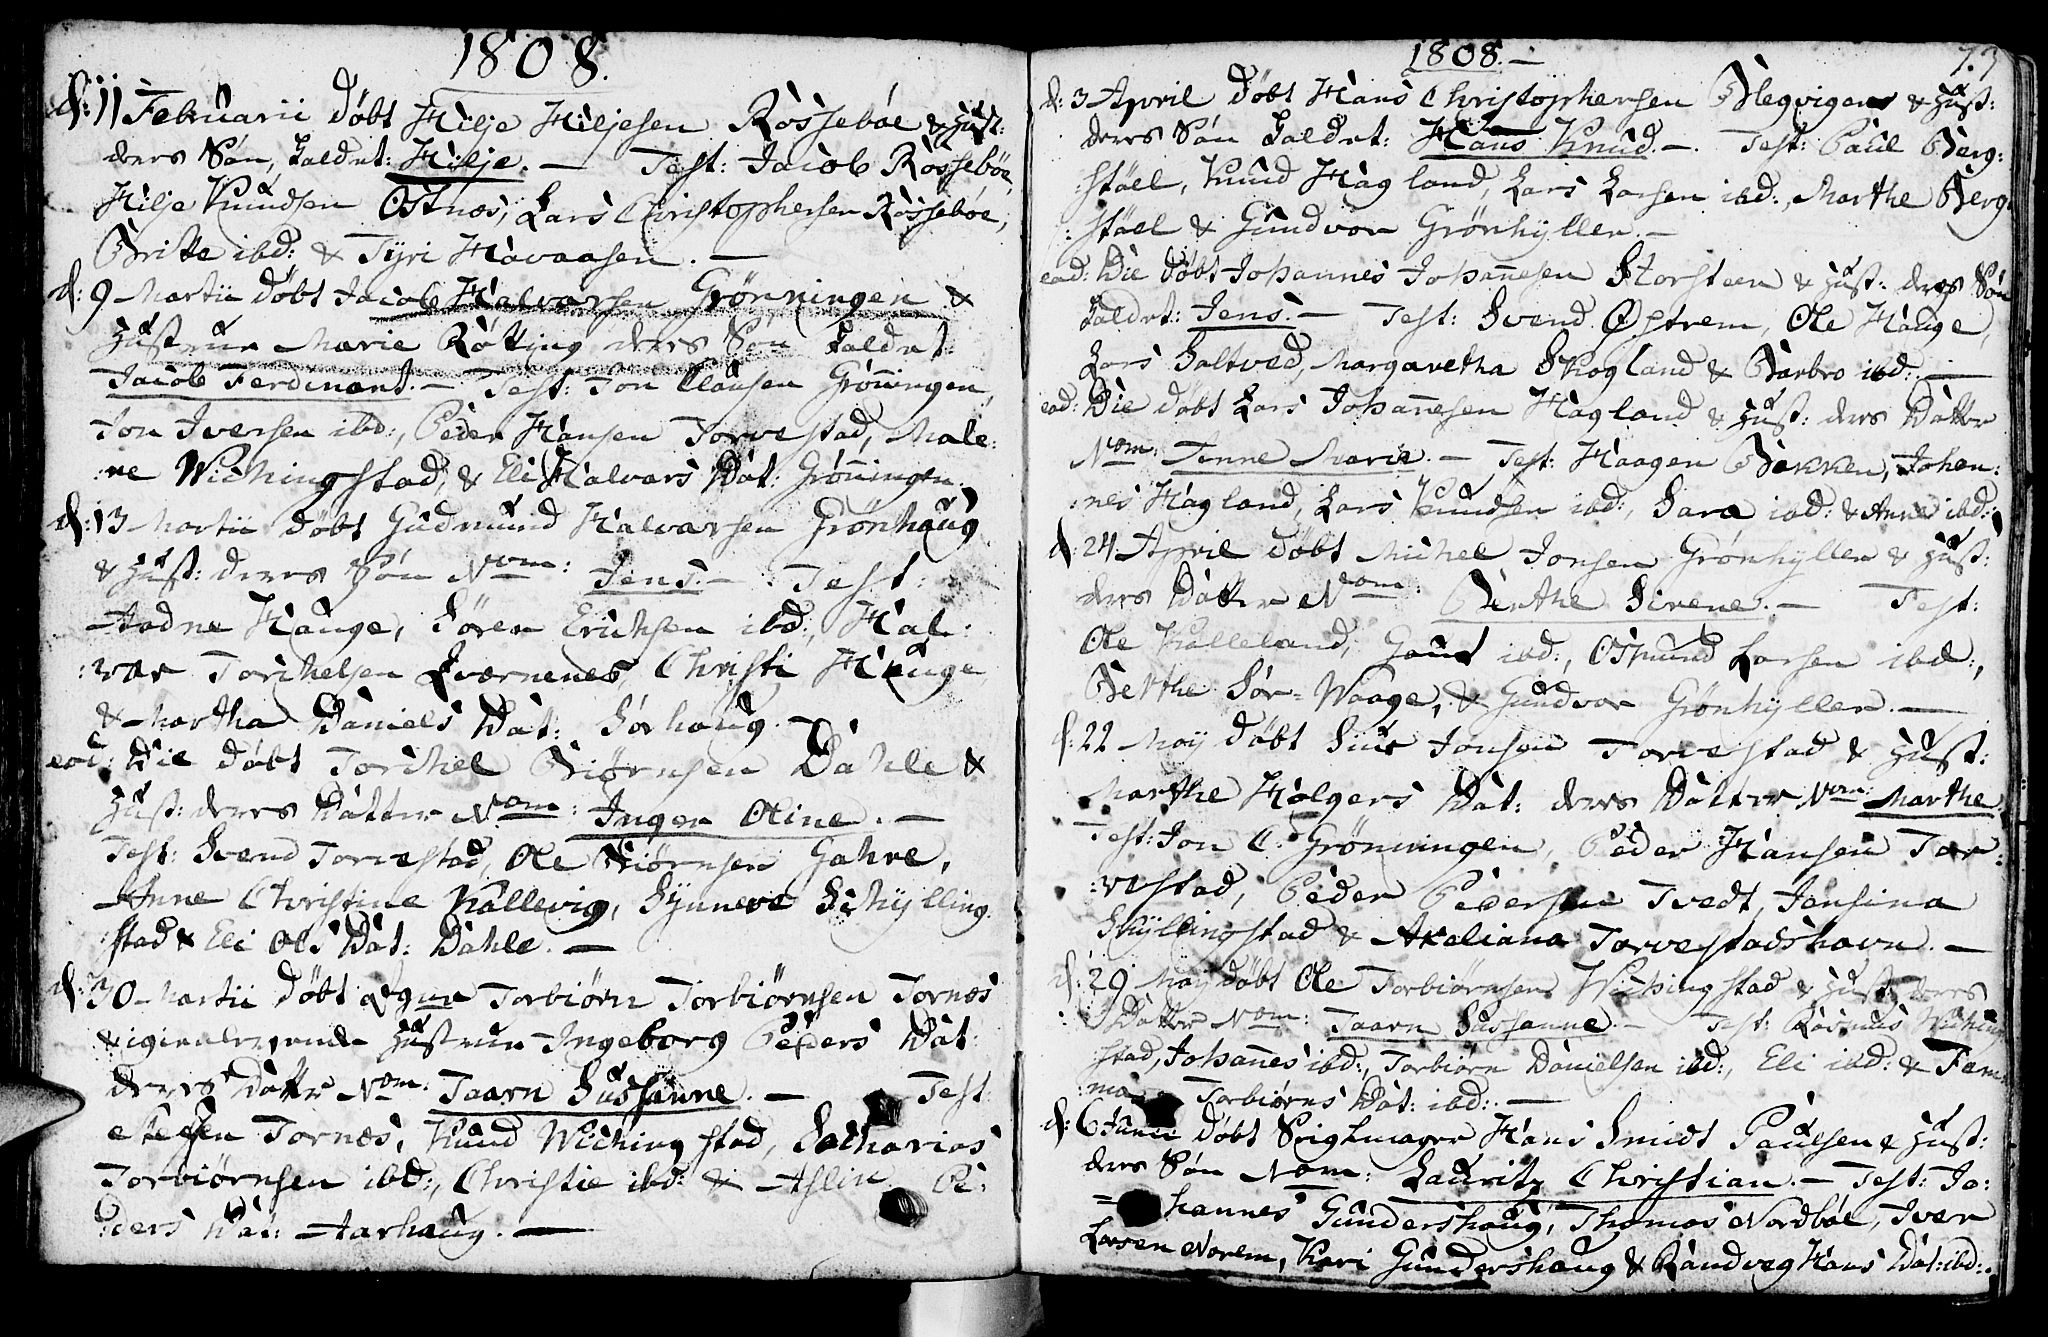 1808.
d: 11 Februarii döbt Hilje Hiljesen Rossebøe & Hust:
deres Søn, kaldet: Hilje. — Test: Jacob Rossebøe,
Hilje Knudsen Ostnæs, Lars Christophersen Rossebøe,
Britte ibd: & Tyri Havaasen. —
d: 9 Martii döbt Jacob Halvorsen Grönningen &
Hustrue Marie Rötting deres Søn kaldet
Jacob Ferdinant. — Test: Jon Clausen Grönningen,
Jon Iversen ibd:, Peder Hansen Torvestad, Male:
:ne Wichingstad, & Eli Halvars Dat: Grönningen.
d: 13 Martii döbt Gudmund Halvarsen Grönhaug
& Hust: deres Søn Nom: Jens. — Test:
Aadne Hauge, Sören Erichsen ibd:, Hal:
:var Torchelsen Qværnenes, Christi Hauge
& Martha Daniels Dat: Sörhaug. —
eod: Die döbt Torchel Biörnsen Dahle &
Hust: deres Datter Nom: Inger Oline. —
Test: Svend Torvestad, Ole Biörnsen Gahre,
Anne Christine Kallevig, Synneve Schylling:
:stad & Eli Ols Dat: Dahle. —
d: 30 Martii döbt Torbiörn Torbiörnsen Tornæs
& Hustrue Ingeborg Peders Dat:
deres Datter Nom: Taarn Sussanne. — Test:
Tornæs, Knud Wichingstad, Sacharias
Torbiörnsen ibd:, Christie ibd: & Aslin Pe:
:ders Dat: Aarhaug. —
1808. — 73
d: 3 April döbt Hans Christophersen Blegvigen & Hust:
deres Søn kaldet: Hans Knud. —. Test: Paul Berg:
:stöel, Knud Hagland, Lars Larsen ibd:, Marthe Berg:
:stöel & Gundvor Grönhyller. —
eod: Die döbt Johannes Johannesen Storsteen & Hust: deres Søn
kaldet: Jens. — Test: Svend Östrem, Ole Hauge,
Lars Saltved, Margaretha Skogland & Barbro ibd: —
eod: Die döbt Lars Johannesen Hagland & Hust: deres Datter
Nom: Tenne Marie. — Test: Haagen Bekken, Johan:
:nes Hagland, Lars Knudsen ibd:, Sara ibd: & Anne ibd:
d: 24 April döbt Michel Jonsen Grönhyller & Hust:
deres Datter Nom: Berthe Sirene. — Test:
Ole Kalleland, Gaut ibd:, Osmund Larsen ibd:,
Berthe Sör-Waage, & Gundvor Grönhyller. —
d: 22 Maÿ döbt Siur Jonsen Torvestad & Hust:
Marthe Holgers Dat: deres Datter Nom: Marthe.
Test: Jon C. Grönningen, Peder Hansen Tor:
:vestad, Peder Pedersen Tvedt, Jansina
Skyllingstad & Axeliana Torvestadshavn. —
d: 29 Maÿ döbt Ole Torbiörnsen Wichingstad & Hust: deres
Datter Nom: Taarn Sussanne. — Test: Rasmus Wiching:
stad, Johannes ibd:, Torbiörn Danielsen ibd:, Eli ibd: & Fem:
:ma Torbiörns Dat: ibd: —
d: 6 Junii döbt Hans Smidt Paulsen & Hust:
deres Søn Nom: Lauritz Christian. — Test: Jo:
=hannes Gundershaug, Thomas Nordböe, Iver
Larsen Norem, Kari Gundershaug & Randveg Hans Dat: ibd:.